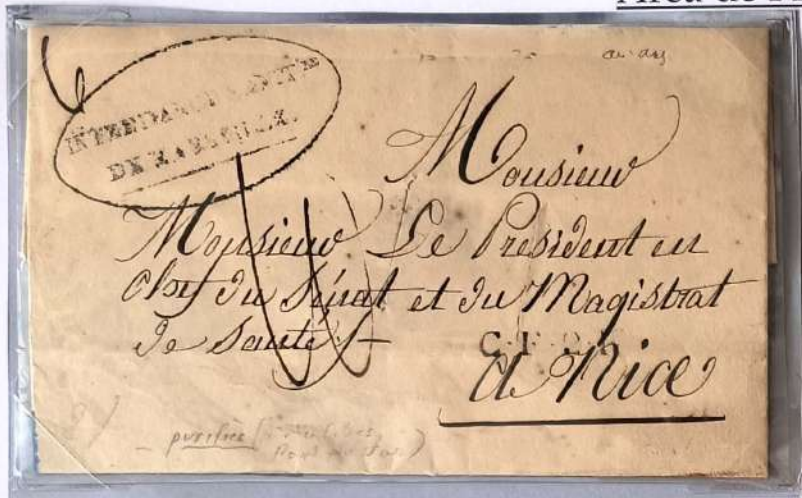 INTENDANCE SANIT^RE
DE MARSEILLE.
Monsieur
Monsieur Le President en
Chef du Sénat et du Magistrat
de Santé
C.F.
à Nice
purifiée